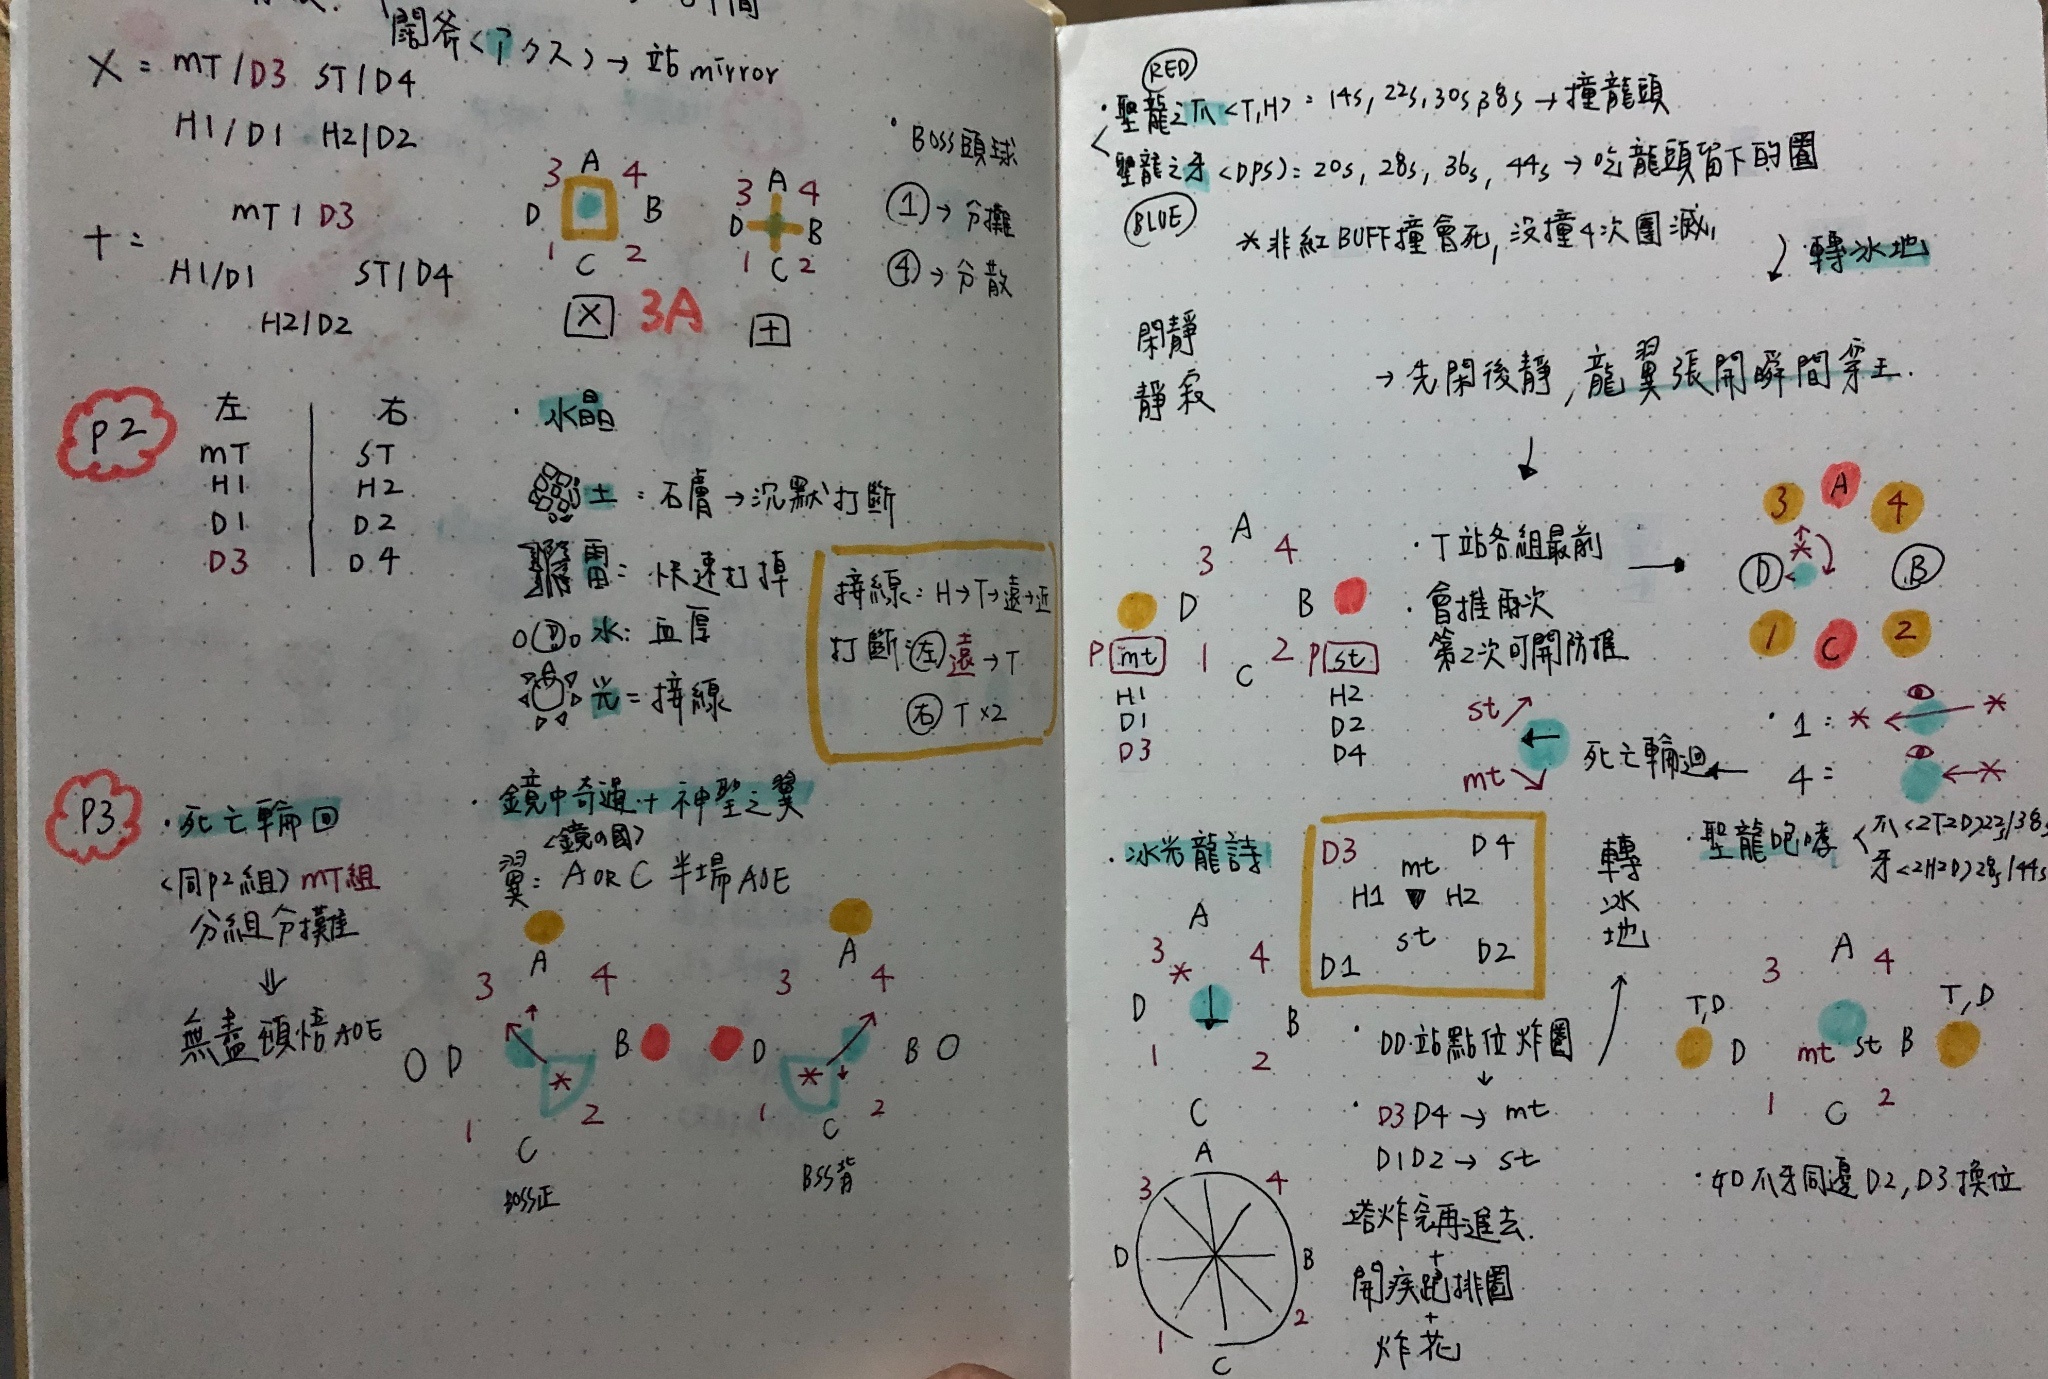 闊斧<アクス>→站mirror
X = MT/D3 ST/D4
H1/D1 H2/D2
+ =
MT/D3
H1/D1 ST/D4
H2/D2
3 A 4
D B
1 C 2
X
3A
3 A 4
D B
1 C 2
+
・BOSS頭球
①→分攤
④→分散
P2
左 右
MT ST
H1 H2
D1 D2
D3 D4
・水晶
土:石膚→沉默打斷
雷:快速打掉
水:血厚
光=接線
接線:H→T→遠→近
打斷:左 遠→T
右 T×2
P3
・死亡輪回
<同P2組> MT組
分組分攤
⇓
無盡頓悟AOE
・鏡中奇遇+神聖之翼
<鏡の国>
翼:A OR C 半場AOE
A
3 4
D B
1 2
C
BOSS正
A
3 4
D B
1 2
C
BSS背
RED
・聖龍之爪<T,H>=14s,22s,30s,38s→撞龍頭
聖龍之牙<DPS>:20s,28s,36s,44s→吃龍頭留下的圈
BLUE
*非紅BUFF撞會死,沒撞4次團滅
轉冰地
閑靜
靜寂
→先閑後靜,龍翼張開瞬間穿王.
↓
A
3 4
D B
1 2
C
P mt P st
H1 H2
D1 D2
D3 D4
・T站各組最前 →
・會推兩次
第2次可開防推
3 A 4
D B
1 C 2
・1:
4=
死亡輪迴←
st
mt
・冰光龍詩
D3 mt D4
H1 ▼ H2
st
D1 D2
A
3 4
D B
1 2
C
・DD站點位炸圈
↓
・D3D4→mt
D1D2→st
塔炸完再進去.
+
開疾跑排圈
+
炸花
轉冰地
A
3 4
D B
1 2
C
・聖龍咆哮<爪<2T2D>22s/38s
牙<2H2D>28s/44s
A
3 4
T,D T,D
D mt st B
1 C 2
・如D爪牙同邊D2,D3換位